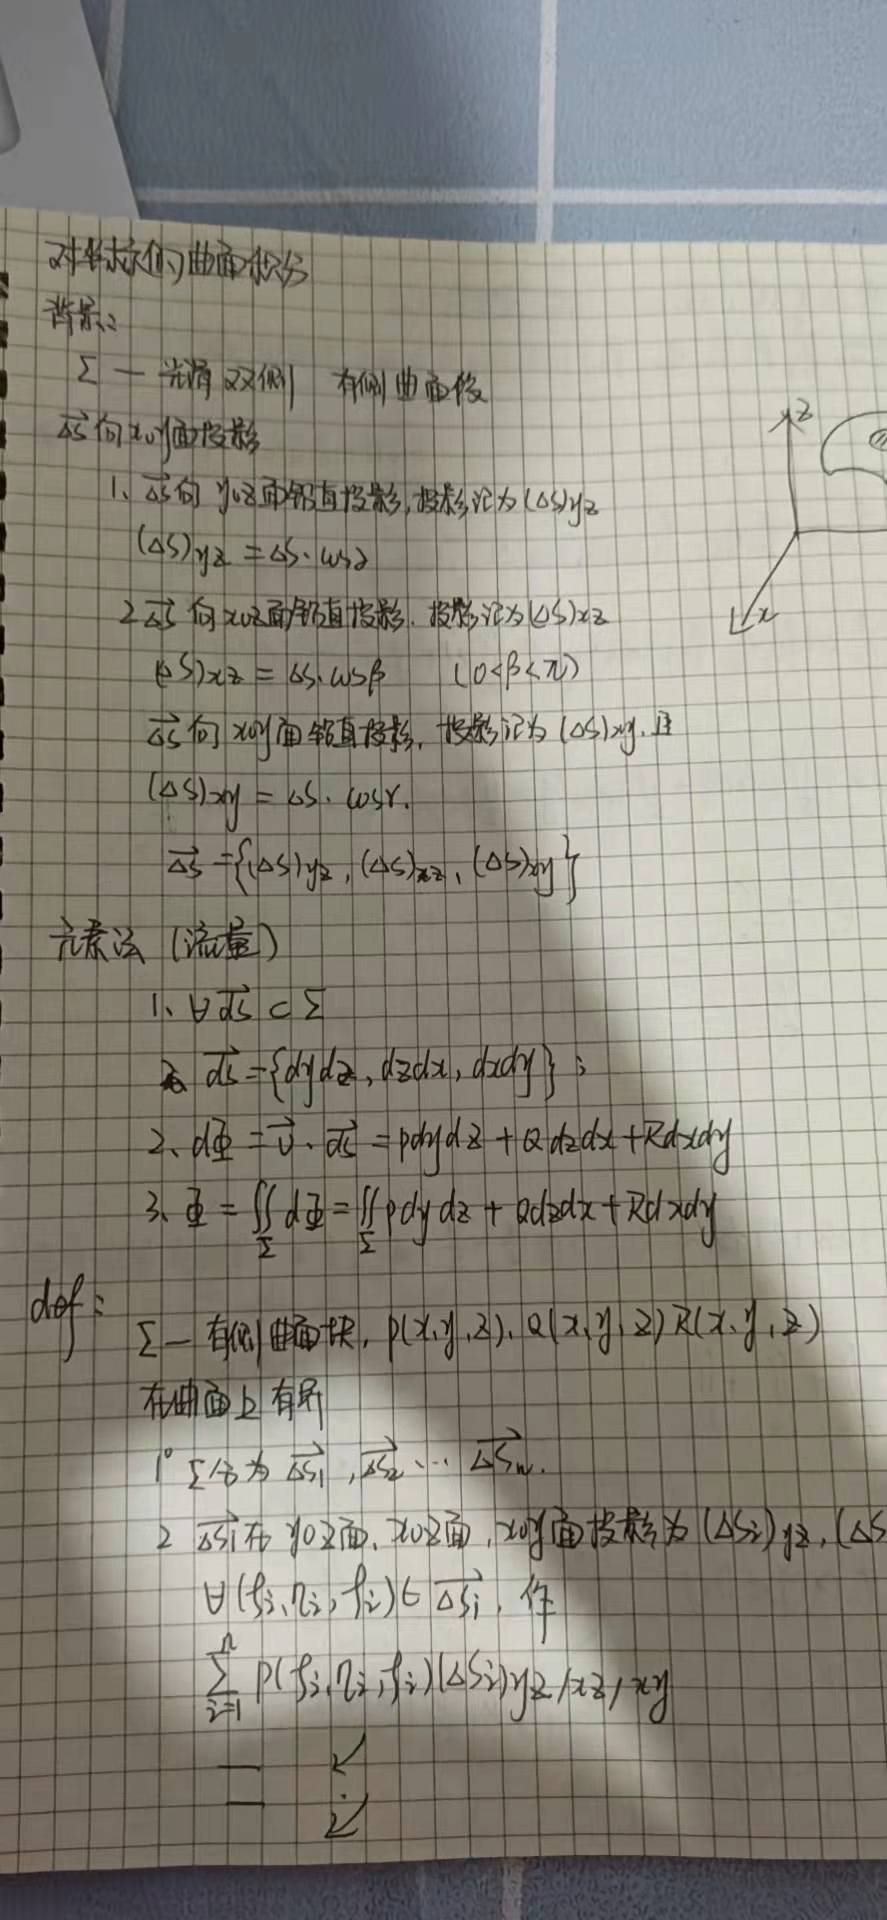 对坐标的曲面积分
背景:
Σ — 光滑 双侧 有侧曲面段
ΔS⃗ 向 xoy面投影
1、ΔS⃗向 yoz面铅直投影,投影记为(ΔS)yz
(ΔS)yz = ΔS·cosα
2 ΔS⃗ 向 xoz面铅直投影.投影记为(ΔS)xz
(ΔS)xz = ΔS·cosβ (0<β<π)
ΔS⃗ 向 xoy面铅直投影,投影记为(ΔS)xy.且
(ΔS)xy = ΔS·cosγ.
ΔS⃗ = {(ΔS)yz, (ΔS)xz, (ΔS)xy}
z
x
元素法(流量)
1、∀dS⃗ ⊂ Σ
dS⃗ = {dydz, dzdx, dxdy};
2、dΦ = v⃗·dS⃗ = Pdydz + Qdzdx + Rdxdy
3、Φ = ∬Σ dΦ = ∬Σ Pdydz + Qdzdx + Rdxdy
def:
Σ — 有侧曲面块,P(x,y,z)、Q(x,y,z) R(x,y,z)
在曲面上有界
1° Σ分为 ΔS⃗1, ΔS⃗2 … ΔS⃗n.
2 ΔS⃗i在 yoz面、xoz面,xoy面投影为(ΔSi)yz,(ΔS
∀(ξi,ηi,ζi)∈ΔS⃗i,作
∑i=1n P(ξi,ηi,ζi)(ΔSi)yz/xz/xy